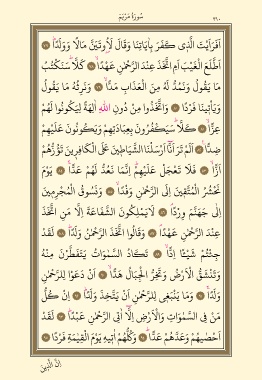 سُورَةُ مَرْيَمَ
٣١٠
اَفَرَاَيْتَ الَّذ۪ي كَفَرَ بِاٰيَاتِنَا وَقَالَ لَاُو۫تَيَنَّ مَالًا وَوَلَدًاۜ ﴿٧٧﴾
اَطَّلَعَ الْغَيْبَ اَمِ اتَّخَذَ عِنْدَ الرَّحْمٰنِ عَهْدًاۙ ﴿٧٨﴾ كَلَّاۜ سَنَكْتُبُ
مَا يَقُولُ وَنَمُدُّ لَهُ مِنَ الْعَذَابِ مَدًّاۙ ﴿٧٩﴾ وَنَرِثُهُ مَا يَقُولُ
وَيَأْت۪ينَا فَرْدًا ﴿٨٠﴾ وَاتَّخَذُوا مِنْ دُونِ اللّٰهِ اٰلِهَةً لِيَكُونُوا لَهُمْ
عِزًّاۙ ﴿٨١﴾ كَلَّاۜ سَيَكْفُرُونَ بِعِبَادَتِهِمْ وَيَكُونُونَ عَلَيْهِمْ
ضِدًّا۟ ﴿٨٢﴾ اَلَمْ تَرَ اَنَّٓا اَرْسَلْنَا الشَّيَاط۪ينَ عَلَى الْكَافِر۪ينَ تَؤُزُّهُمْ
اَزًّاۙ ﴿٨٣﴾ فَلَا تَعْجَلْ عَلَيْهِمْۜ اِنَّمَا نَعُدُّ لَهُمْ عَدًّاۚ ﴿٨٤﴾ يَوْمَ
نَحْشُرُ الْمُتَّق۪ينَ اِلَى الرَّحْمٰنِ وَفْدًاۙ ﴿٨٥﴾ وَنَسُوقُ الْمُجْرِم۪ينَ
اِلٰى جَهَنَّمَ وِرْدًاۢ ﴿٨٦﴾ لَا يَمْلِكُونَ الشَّفَاعَةَ اِلَّا مَنِ اتَّخَذَ
عِنْدَ الرَّحْمٰنِ عَهْدًاۢ ﴿٨٧﴾ وَقَالُوا اتَّخَذَ الرَّحْمٰنُ وَلَدًاۜ ﴿٨٨﴾ لَقَدْ
جِئْتُمْ شَيْـًٔا اِدًّاۙ ﴿٨٩﴾ تَكَادُ السَّمٰوَاتُ يَتَفَطَّرْنَ مِنْهُ
وَتَنْشَقُّ الْاَرْضُ وَتَخِرُّ الْجِبَالُ هَدًّاۙ ﴿٩٠﴾ اَنْ دَعَوْا لِلرَّحْمٰنِ
وَلَدًاۚ ﴿٩١﴾ وَمَا يَنْبَغ۪ي لِلرَّحْمٰنِ اَنْ يَتَّخِذَ وَلَدًاۜ ﴿٩٢﴾ اِنْ كُلُّ
مَنْ فِي السَّمٰوَاتِ وَالْاَرْضِ اِلَّٓا اٰتِي الرَّحْمٰنِ عَبْدًاۜ ﴿٩٣﴾ لَقَدْ
اَحْصٰيهُمْ وَعَدَّهُمْ عَدًّاۜ ﴿٩٤﴾ وَكُلُّهُمْ اٰت۪يهِ يَوْمَ الْقِيٰمَةِ فَرْدًا ﴿٩٥﴾
اِنَّ الَّذ۪ينَ